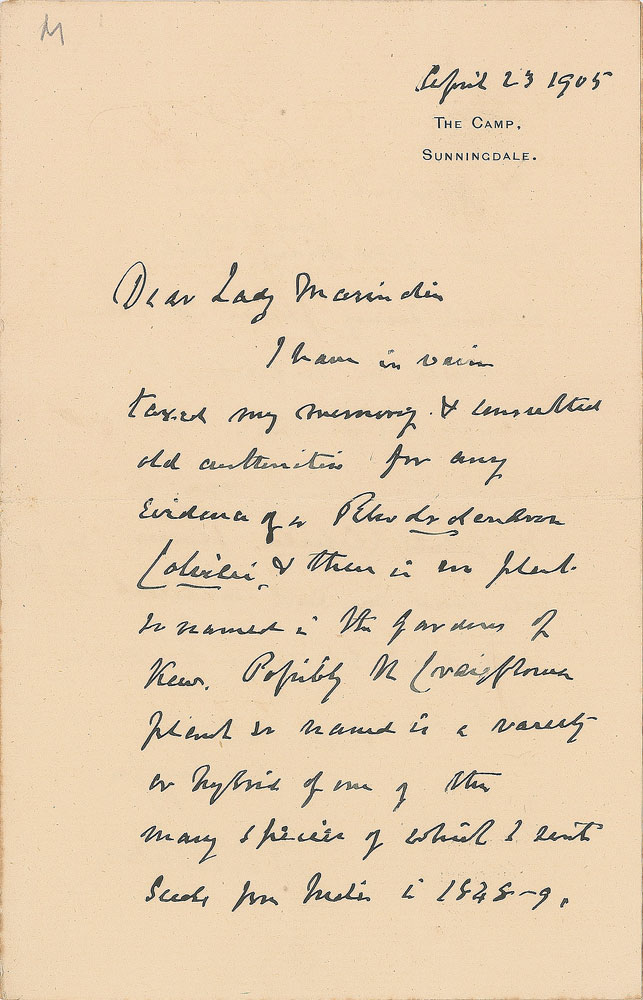 M
April 23 1905
THE CAMP,
SUNNINGDALE.
Dear Lady Marindin
I have in vain
taxed my memory & consulted
old authorities for any
evidence of a Rhododendron
Colvilei, & there is no plant
so named in the Gardens of
Kew. Possibly the Craigflower
plant so named is a variety
or hybrid of one of the
many species of which I sent
seeds from India in 1848-9.